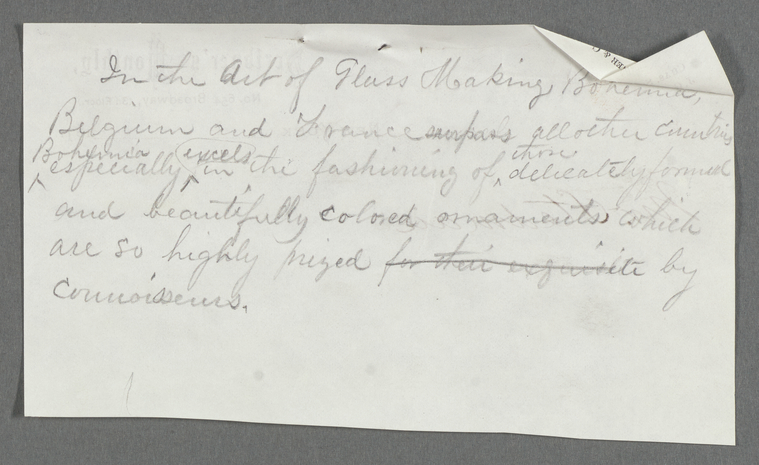 In the Art of Glass Making, Bohemia,
Belgium and France surpass all other countries
Bohemia excels those
especially in the fashioning of delicately formed
and beautifully colored ornaments which
are so highly prized for their exquisite by
connoiseurs.